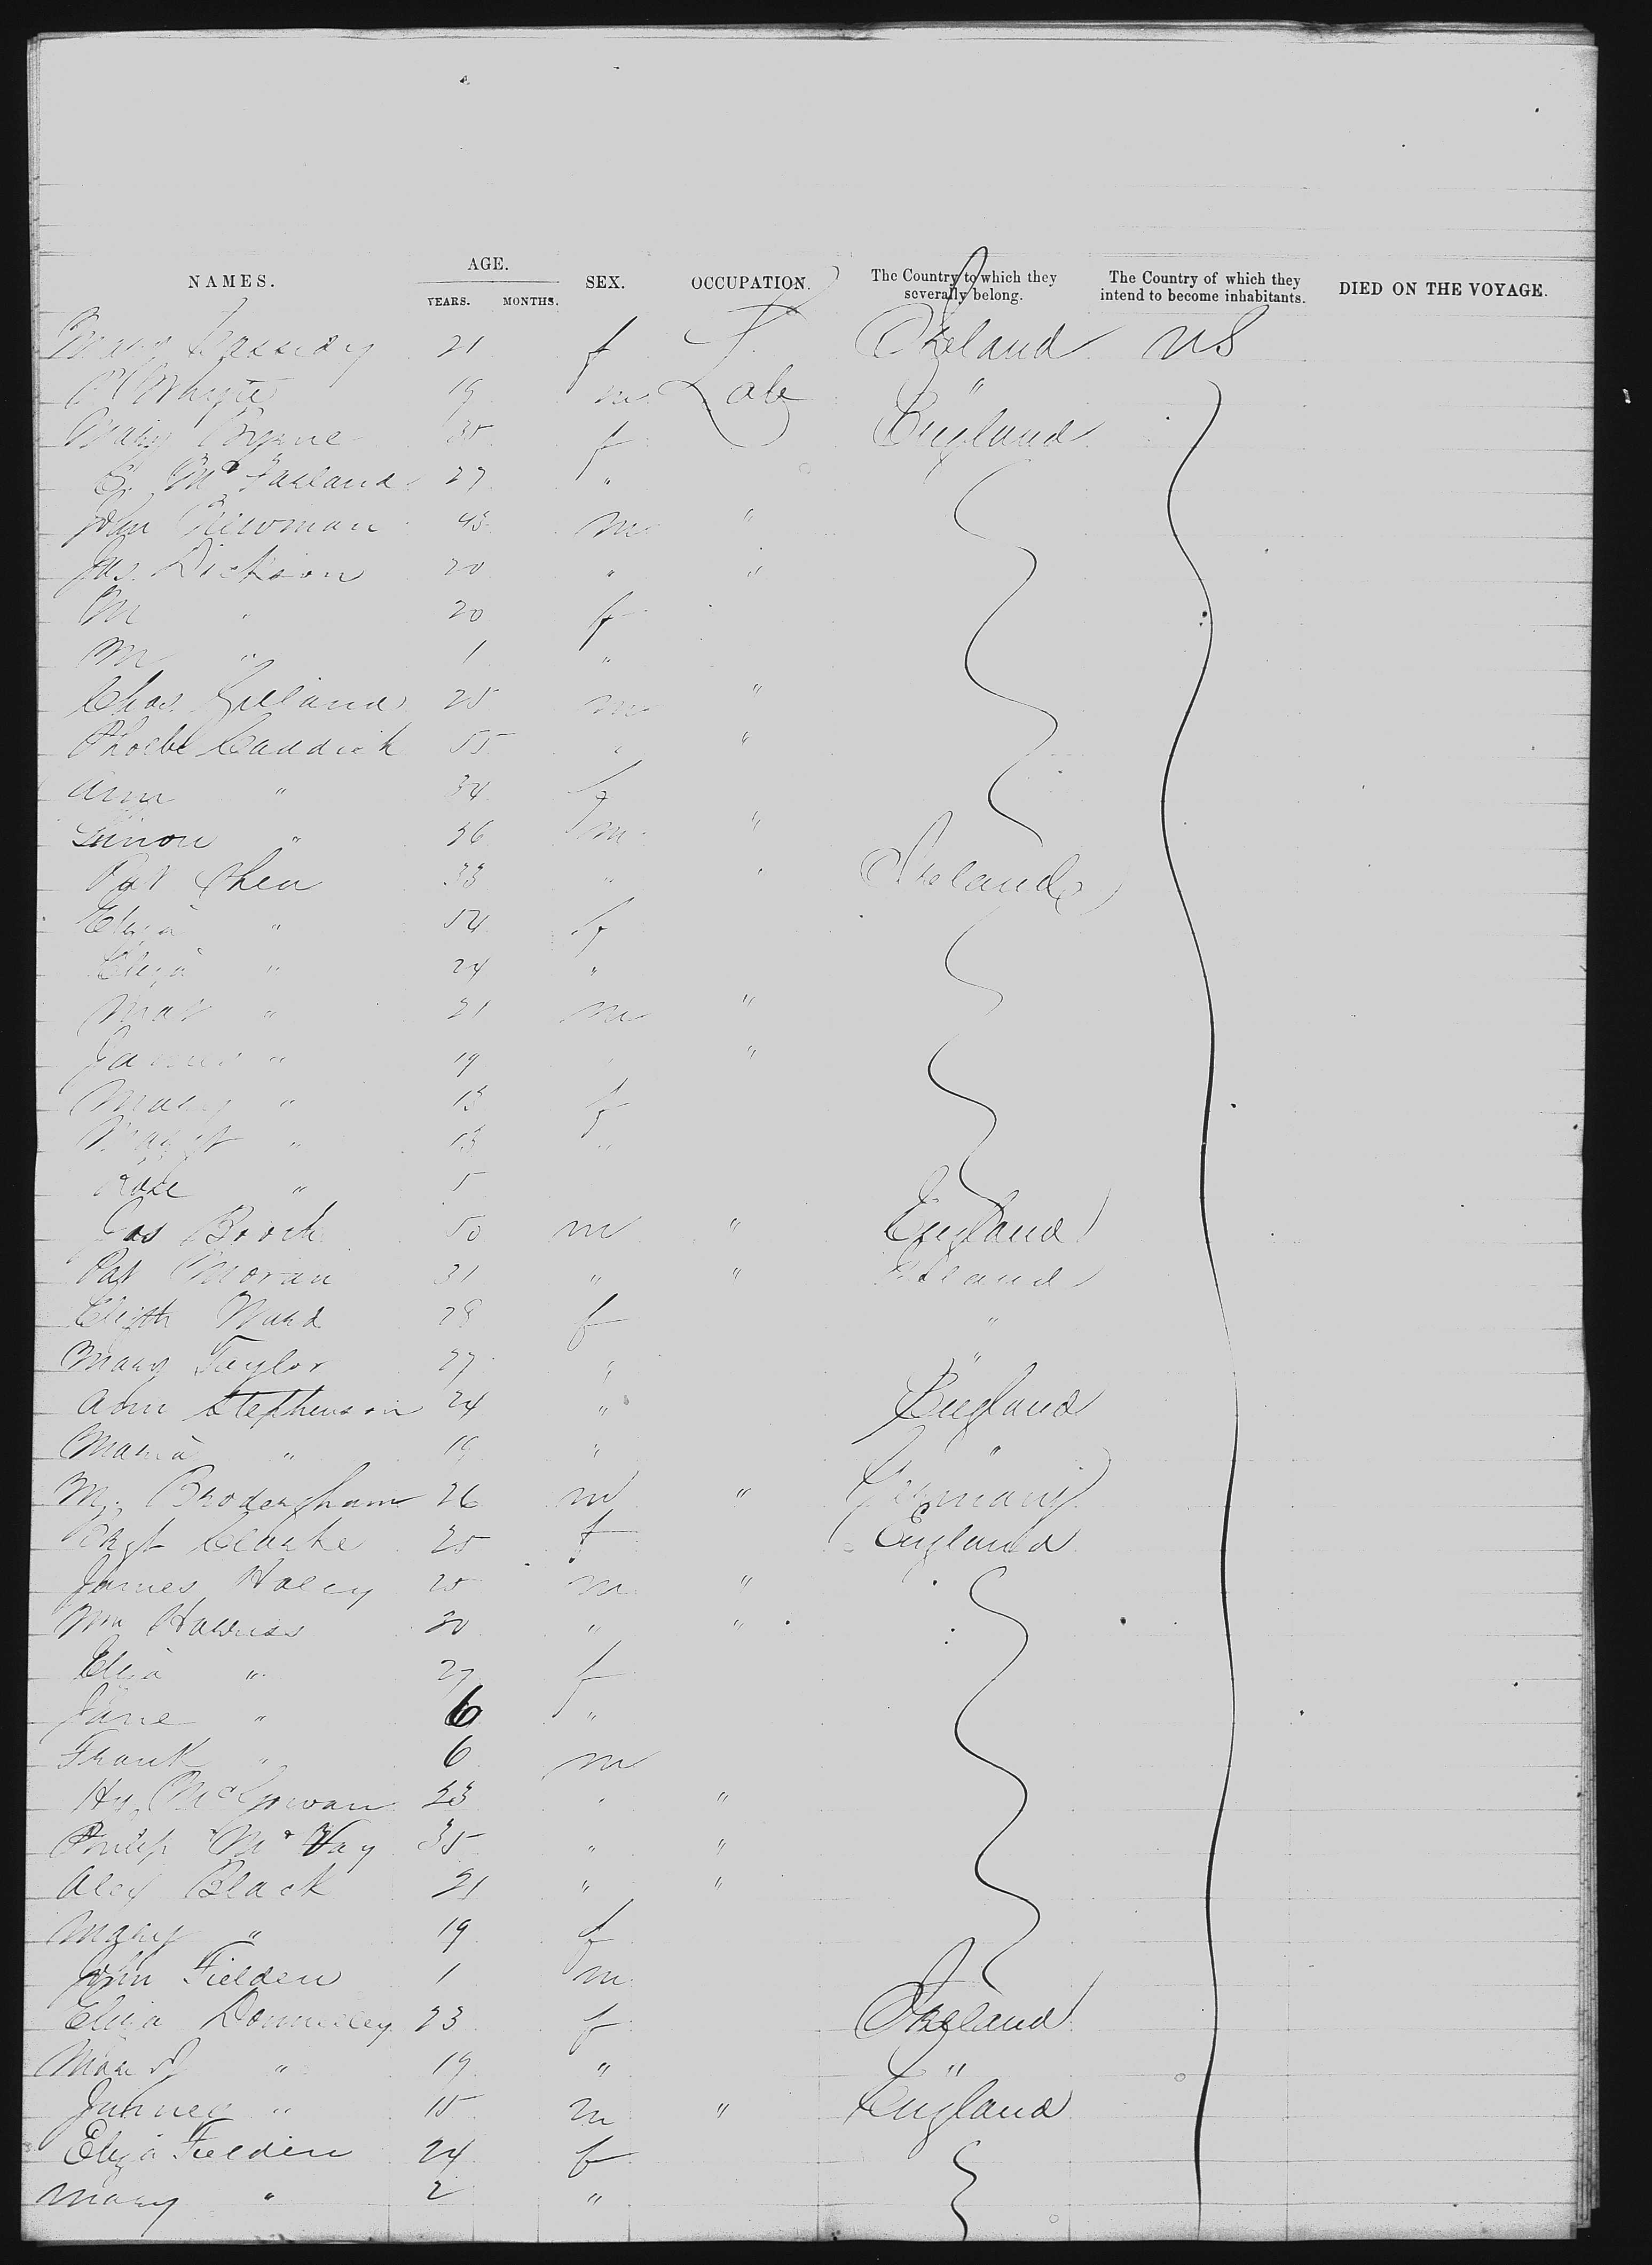 NAMES. AGE. SEX. OCCUPATION. The Country to which they severally belong. The Country of which they intend to become inhabitants. DIED ON THE VOYAGE.
YEARS. MONTHS.
Mary Cassidy 21 f Ireland US
19 m Lab "
Mary Byrne 35 f England
McFarland 27 "
John Newman 45 m "
Jas. Dickson 20 " "
M " 20 f
M " 1 "
Chas. 25 m "
Phoebe Caddick 55 " "
Ann " 34 f
Simon " 36 m "
Pat Shea 33 " " Ireland
Eliza " 54 f
Eliza " 24 "
" 21 m "
James " 19 " "
Mary " 13 f
Margt " 13 "
Rose " 5
Jas 50 m " England
Pat Moran 31 " " Ireland
Elizth Ward 28 f "
Mary Taylor 27 " "
Ann Stephenson 24 " England
Maria " 19 " "
M. 26 m " Germany
Clarke 25 f England
James Haley 25 m "
Wm 30 " "
Eliza " 27 f
Jane " 6 "
Frank " 6 m
Hy. McGowan 23 " "
Philip McVay 35 " "
Alex Black 21 " "
Mary " 19 f
John Fielden 1 m
Eliza Donnelley 23 f Ireland
" 19 " "
" 15 m " England
Eliza Fielden 24 f
Mary " 2 "